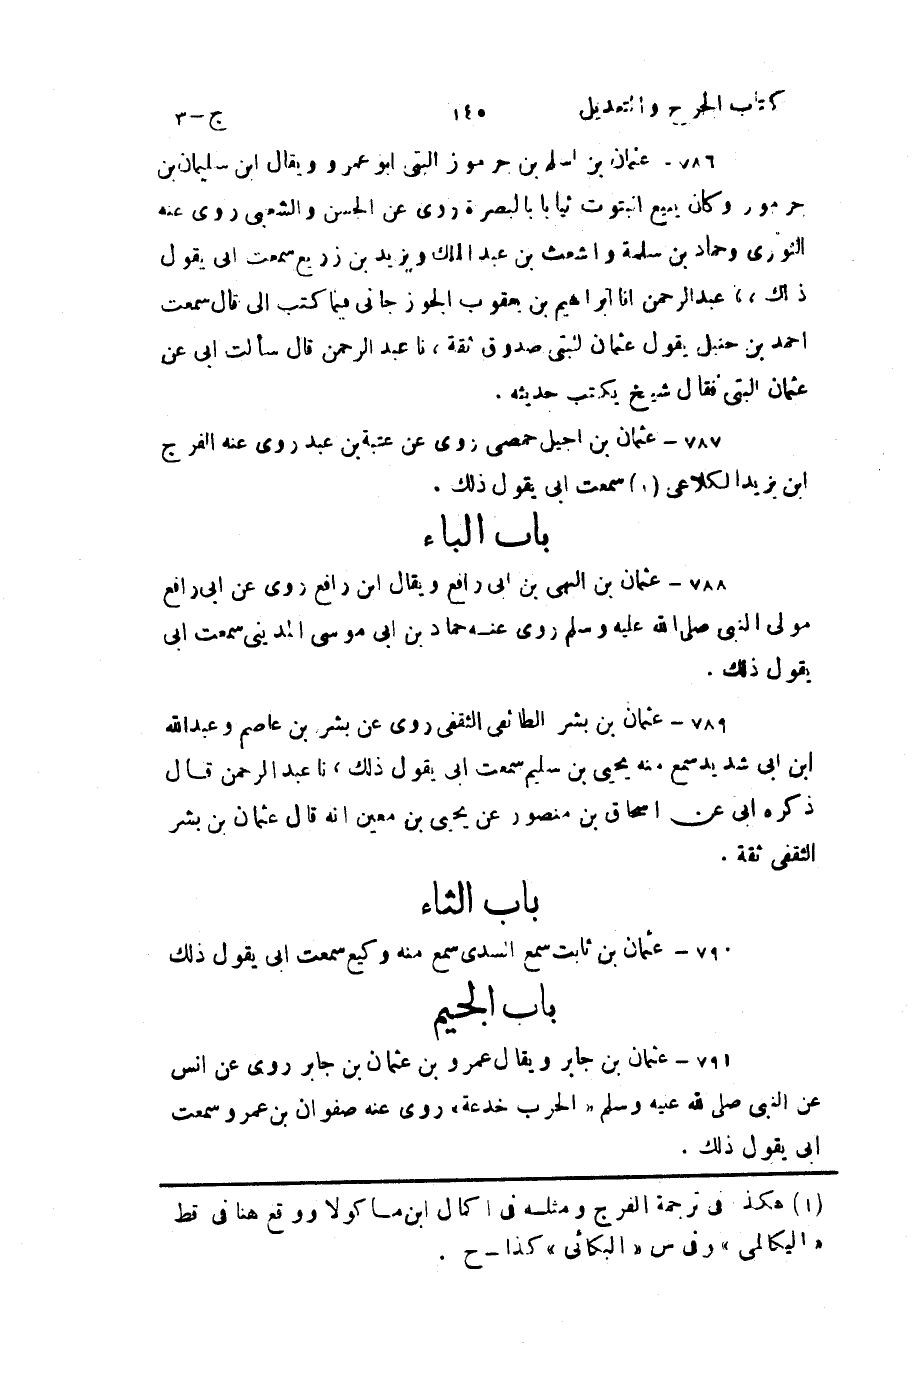 كتاب الجرح والتعديل ١٤٥ ج-٣
٧٨٦ - عثمان بن اسلم بن جرموز البتى ابو عمرو ويقال ابن سليمان بن
جرموز وكان يبيع البتوت ثيابا بالبصرة روى عن الحسن والشعبى روى عنه
الثورى وحماد بن سلمة واشعث بن عبد الملك ويزيد بن زريع سمعت ابى يقول
ذلك ، نا عبدالرحمن انا ابراهيم بن يعقوب الجوزجانى فيما كتب الى قال سمعت
احمد بن حنبل يقول عثمان البتى صدوق ثقة ، نا عبد الرحمن قال سألت ابى عن
عثمان البتى فقال شيخ يكتب حديثه .
٧٨٧ - عثمان بن اجيل حمصى روى عن عتبة بن عبد روى عنه الفرج
ابن يزيد الكلاعى (١) سمعت ابى يقول ذلك .
باب الباء
٧٨٨ - عثمان بن البهى بن ابى رافع ويقال ابن رافع روى عن ابى رافع
مولى النبى صلى الله عليه وسلم روى عنه حماد بن ابى موسى المدينى سمعت ابى
يقول ذلك .
٧٨٩ - عثمان بن بشر الطائفى الثقفى روى عن بشر بن عاصم وعبدالله
ابن ابى شديد سمع منه يحيى بن سليم سمعت ابى يقول ذلك ، نا عبد الرحمن قال
ذكره ابى عن اسحاق بن منصور عن يحيى بن معين انه قال عثمان بن بشر
الثقفى ثقة .
باب الثاء
٧٩٠ - عثمان بن ثابت سمع السدى سمع منه وكيع سمعت ابى يقول ذلك
باب الجيم
٧٩١ - عثمان بن جابر ويقال عمرو بن عثمان بن جابر روى عن انس
عن النبى صلى الله عليه وسلم « الحرب خدعة » روى عنه صفوان بن عمرو سمعت
ابى يقول ذلك .
(١) هكذا فى ترجمة الفرج ومثله فى اكمال ابن ماكولا ووقع هنا فى قط
« اليكالمى » وفى س « البكائى » كذا - ح .